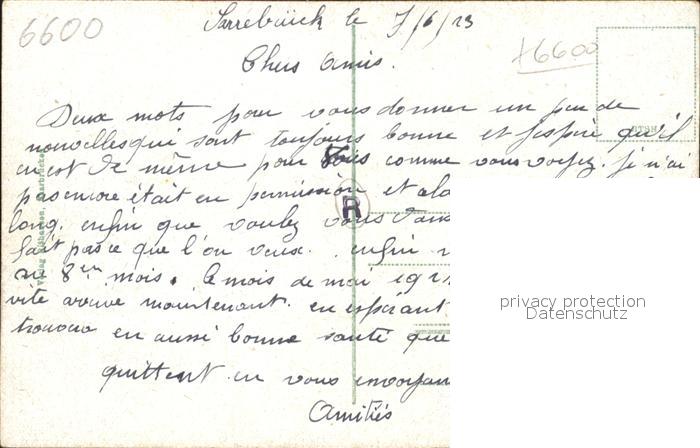 6600
Sarrebrück le 7/6/23
+6600
Chers Amis.
Deux mots pour vous donner un peu de
nouvelles qui sont toujours bonne et j'espère qu'il
en est de même pour vous comme vous voyez. je n'ai
pas encore était en permission et
long. enfin que voulez vous
fait pas ce que l'on veux. enfin
au 8em mois. le mois de mai
vite arrive maintenant. en espérant
en aussi bonne santé que
quittent en vous envoyan
Amitiés
R
privacy protection
Datenschutz